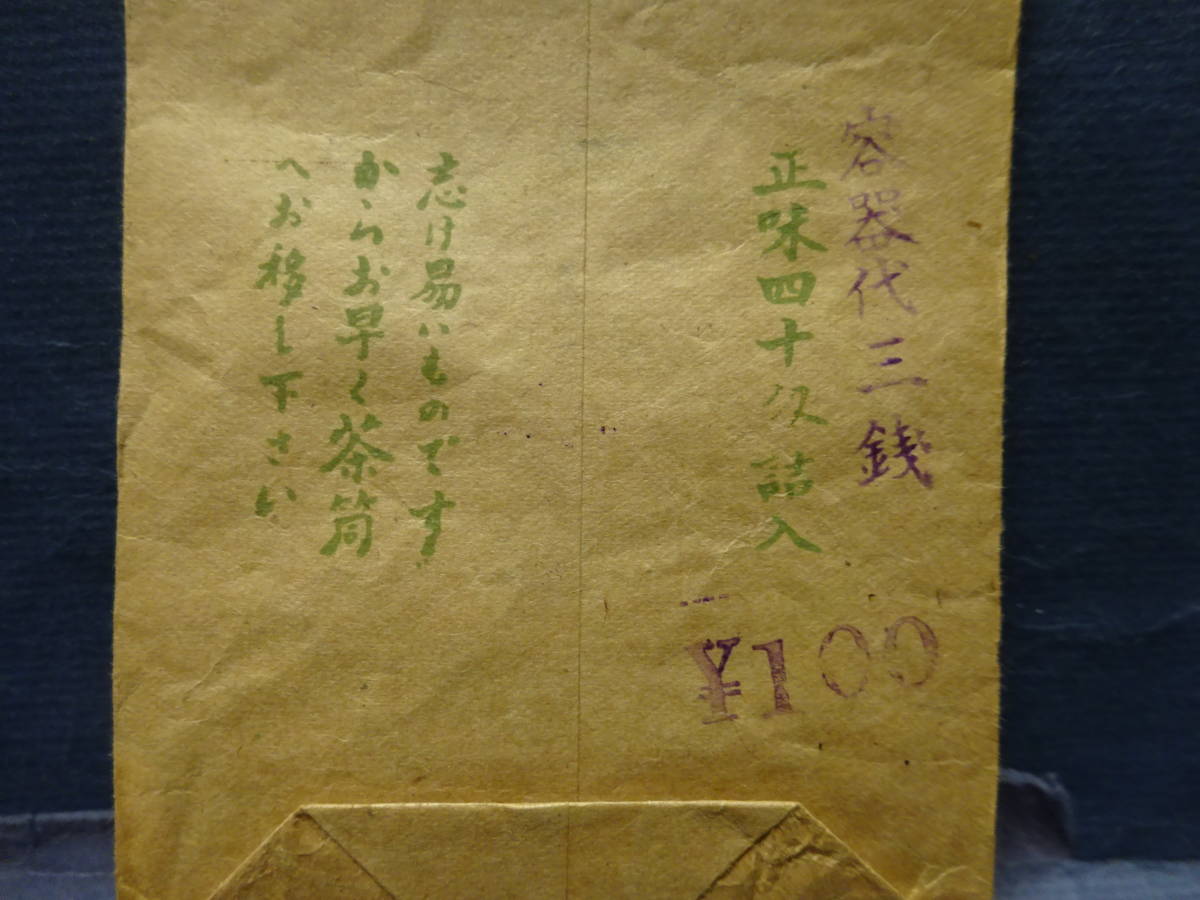 容器代三銭
正味四十匁詰入
¥100
志け易いものです
からお早く茶筒
へお移し下さい